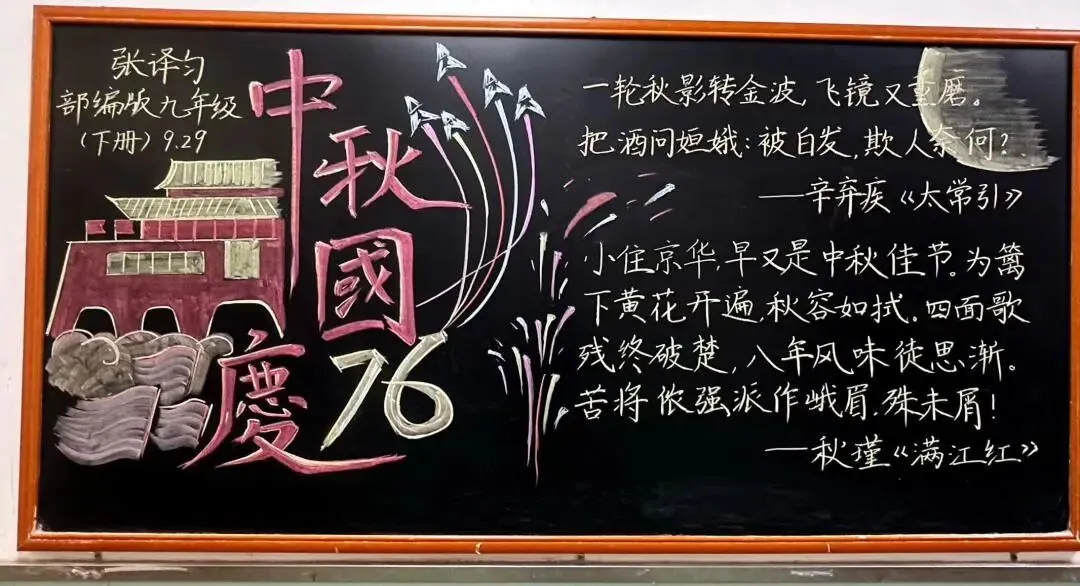 张译匀
部编版九年级
(下册) 9.29
中秋
國慶
76
一轮秋影转金波,飞镜又重磨。
把酒问姮娥:被白发,欺人奈何?
——辛弃疾《太常引》
小住京华,早又是中秋佳节。为篱
下黄花开遍,秋容如拭。四面歌
残终破楚,八年风味徒思渐。
苦将侬强派作峨眉,殊未屑!
——秋瑾《满江红》